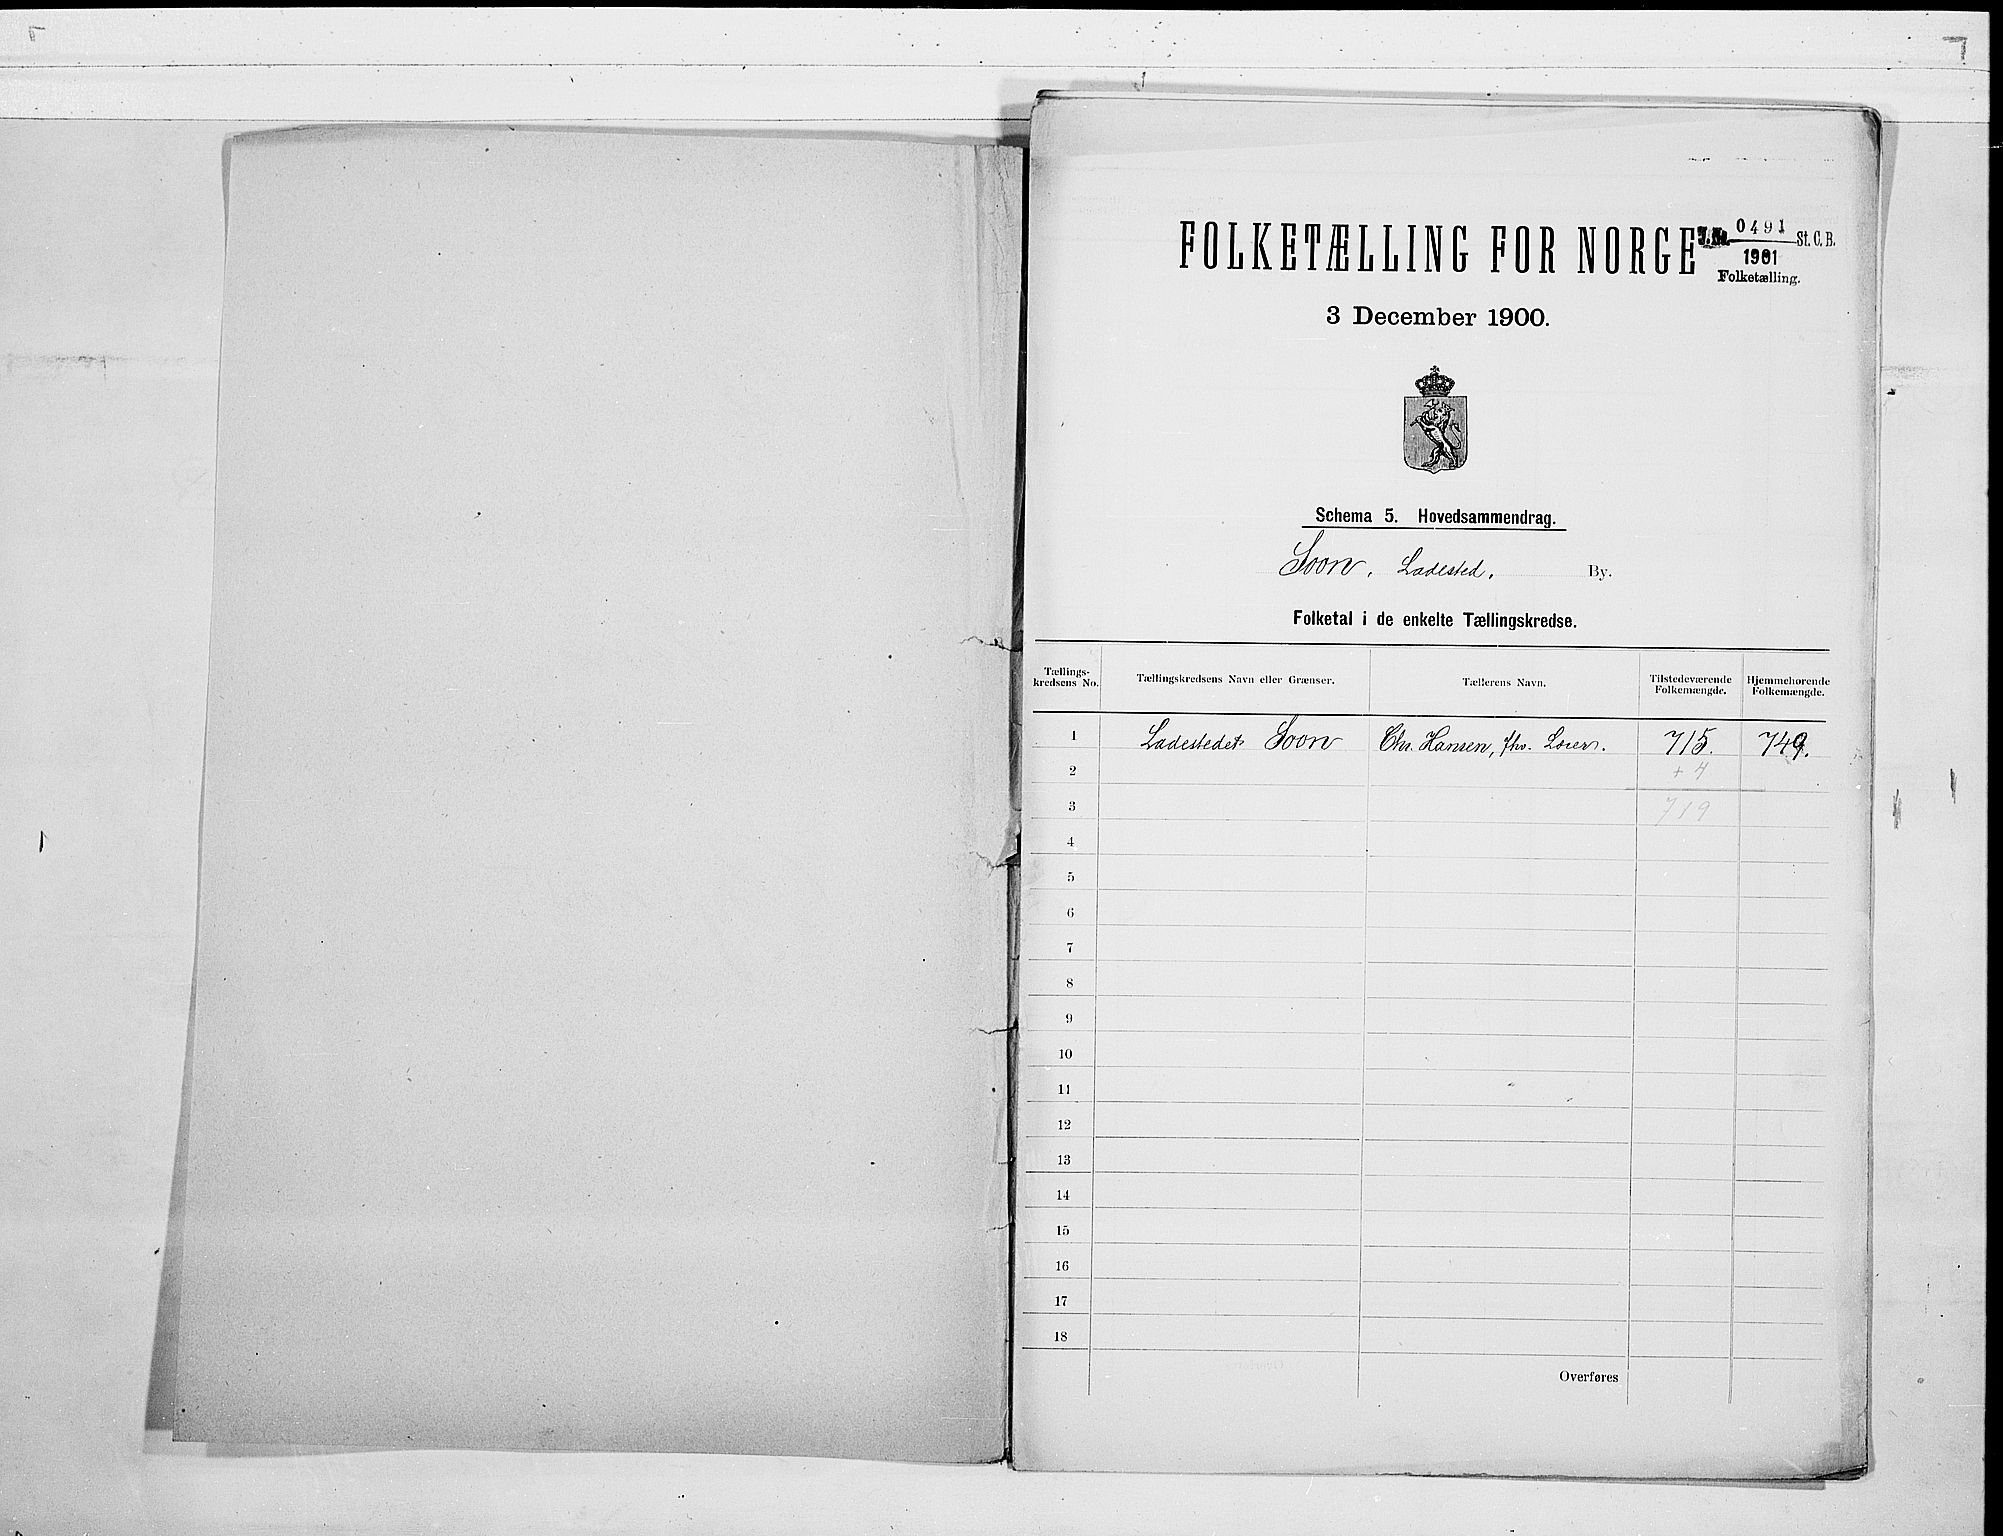 FOLKETÆLLING FOR NORGE
J.No. 0491 St. C. B.
1901
Folketælling.
3 December 1900.
Schema 5. Hovedsammendrag.
Soon, Ladested, By.
Folketal i de enkelte Tællingskredse.
Tællings-
kredsens No.
Tællingskredsens Navn eller Grænser.
Tællerens Navn.
Tilstedeværende
Folkemængde.
Hjemmehørende
Folkemængde.
1 Ladestedet Soon Chr. Hansen, fhv. 715. 749.
2 + 4
3 719
4
5
6
7
8
9
10
11
12
13
14
15
16
17
18
Overføres